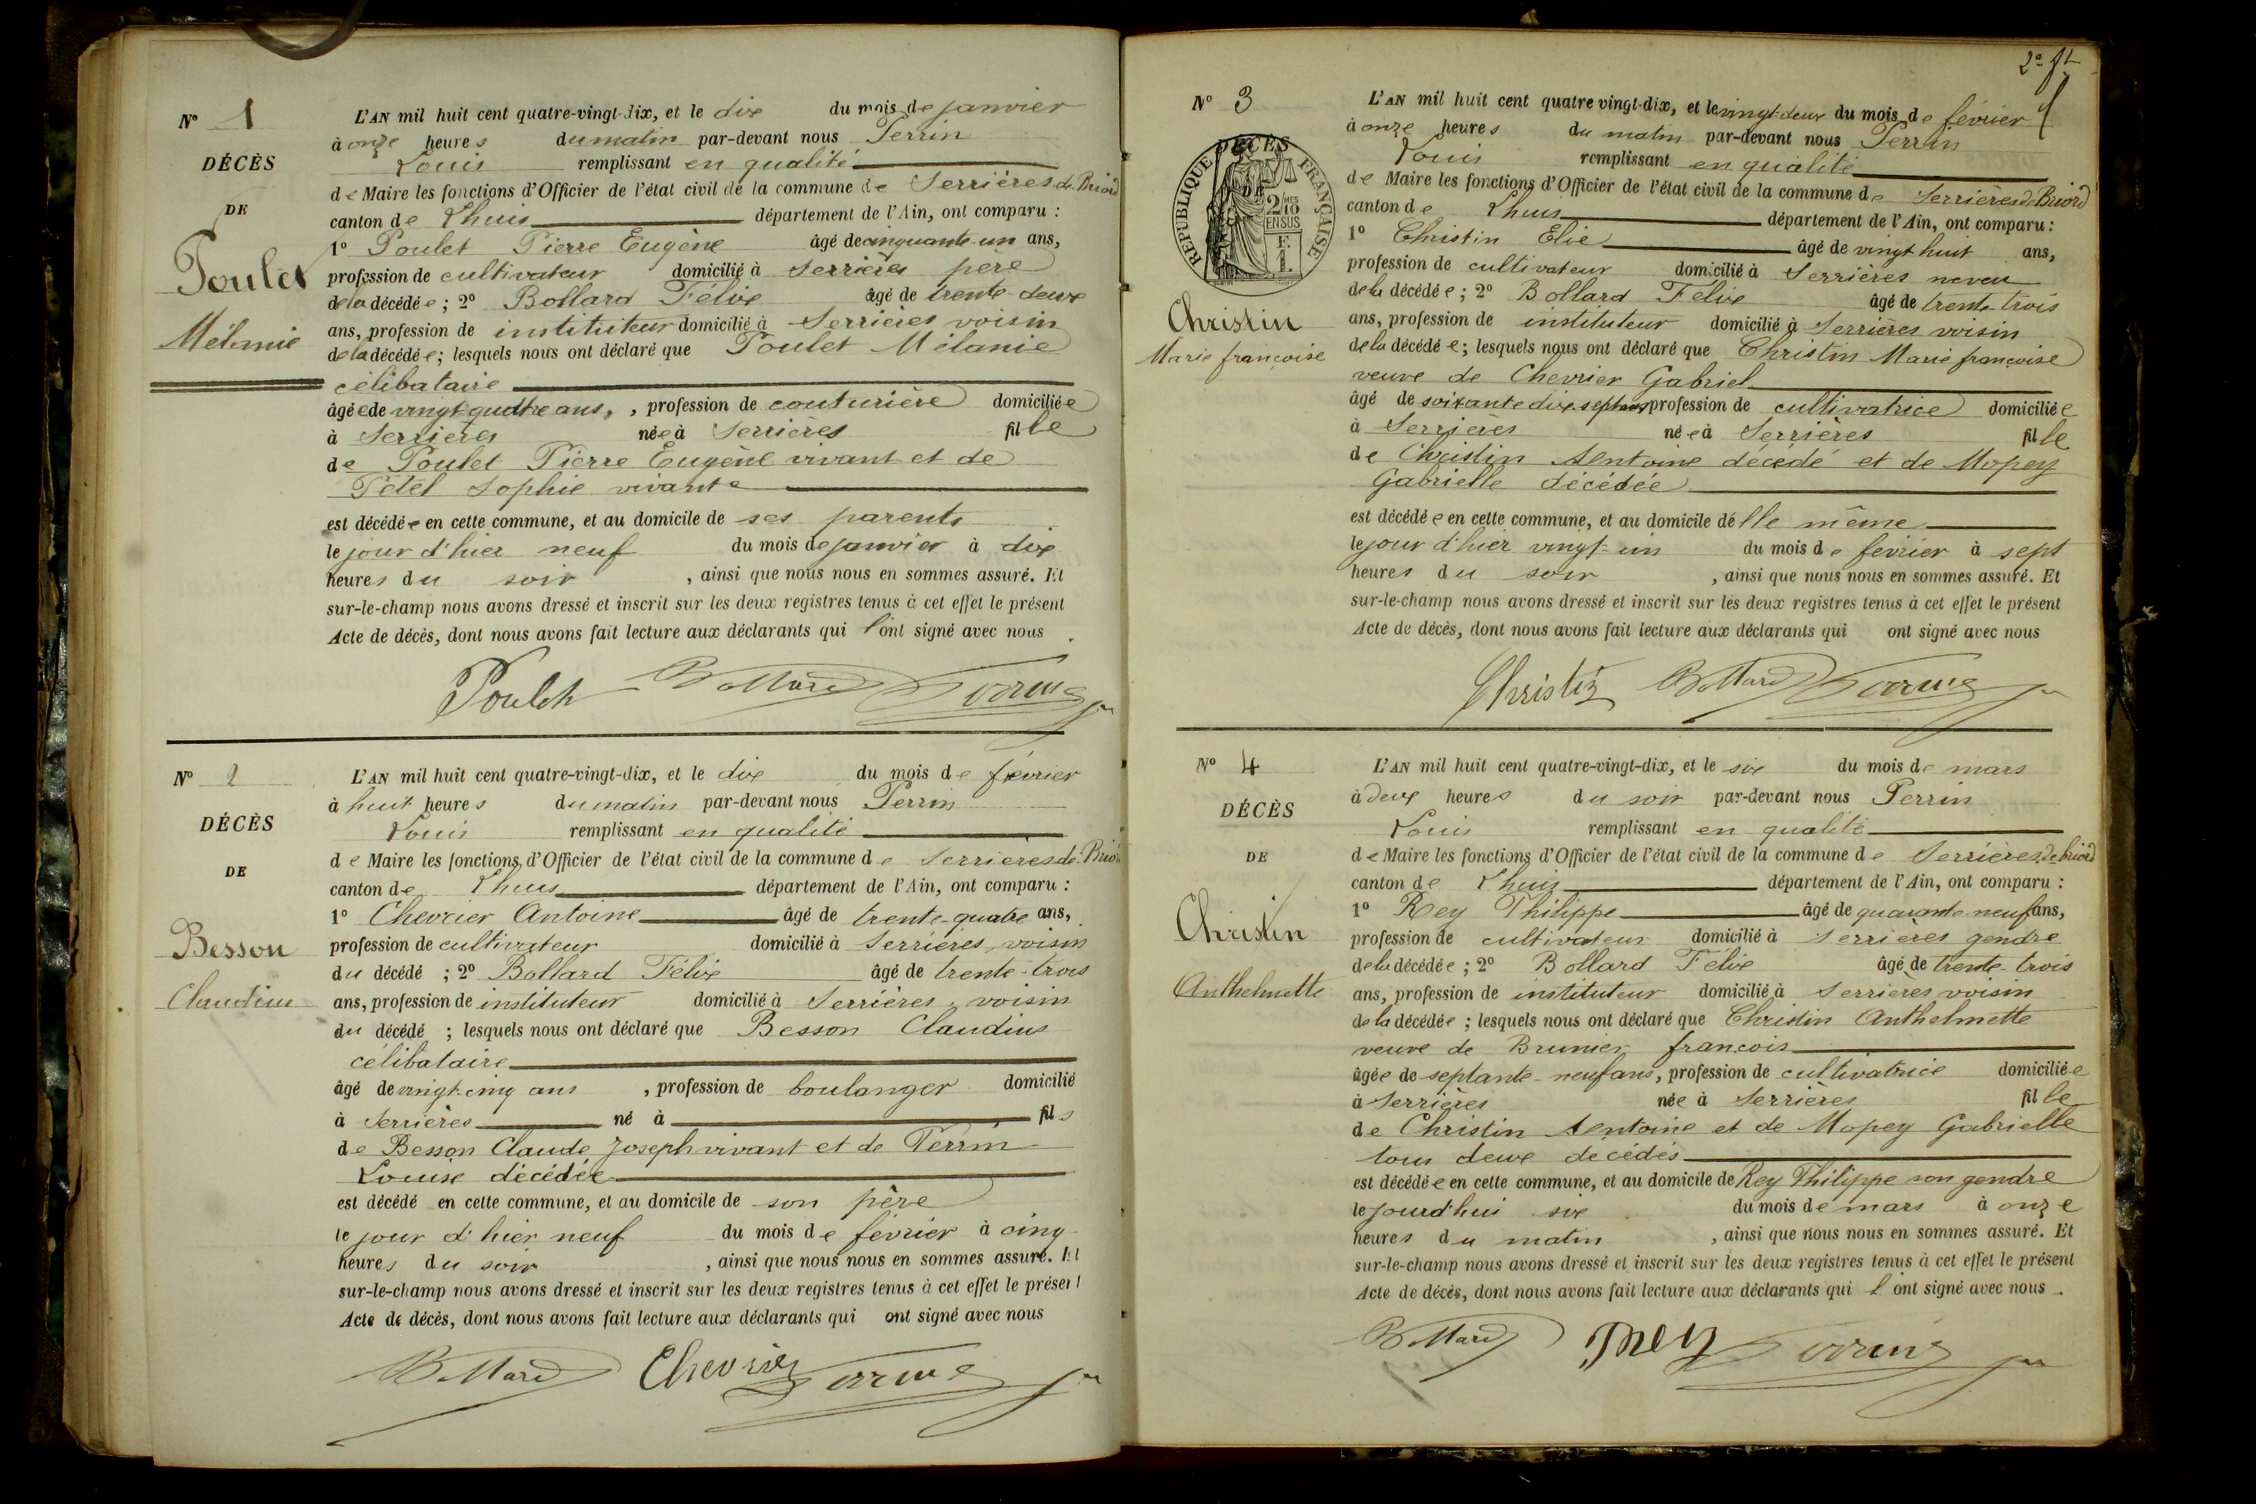 N° 1
DÉCÈS
DE
Poulet
Mélanie
L'AN mil huit cent quatre-vingt-dix, et le dix du mois de janvier
à onze heures du matin par-devant nous Perrin
Louis remplissant en qualité
de Maire les fonctions d'Officier de l'état civil de la commune de Serrières de Briord
canton de Lhuis département de l'Ain, ont comparu :
1° Poulet Pierre Eugène âgé de cinquante-un ans,
profession de cultivateur domicilié à Serrières père
de la décédée ; 2° Bollard Félix âgé de trente-deux
ans, profession de instituteur domicilié à Serrières voisin
de la décédée ; lesquels nous ont déclaré que Poulet Mélanie
célibataire
âgée de vingt-quatre ans, , profession de couturière domiciliée
à Serrières née à Serrières fille
de Poulet Pierre Eugène vivant et de
Pétel Sophie vivante
est décédée en cette commune, et au domicile de ses parents
le jour d'hier neuf du mois de janvier à dix
heures du soir , ainsi que nous nous en sommes assuré. Et
sur-le-champ nous avons dressé et inscrit sur les deux registres tenus à cet effet le présent
Acte de décès, dont nous avons fait lecture aux déclarants qui l'ont signé avec nous .
Poulet Bollard Perrin
N° 2
DÉCÈS
DE
Besson
Claudius
L'AN mil huit cent quatre-vingt-dix, et le dix du mois de février
à huit heures du matin par-devant nous Perrin
Louis remplissant en qualité
de Maire les fonctions d'Officier de l'état civil de la commune de Serrières de Briord
canton de Lhuis département de l'Ain, ont comparu :
1° Chevrier Antoine âgé de trente-quatre ans,
profession de cultivateur domicilié à Serrières, voisin
du décédé ; 2° Bollard Félix âgé de trente-trois
ans, profession de instituteur domicilié à Serrières, voisin
du décédé ; lesquels nous ont déclaré que Besson Claudius
célibataire
âgé de vingt-cinq ans , profession de boulanger domicilié
à Serrières né à fils
de Besson Claude Joseph vivant et de Perrin
Louise décédée
est décédé en cette commune, et au domicile de son père
le jour d'hier neuf du mois de février à cinq
heures du soir , ainsi que nous nous en sommes assuré. Et
sur-le-champ nous avons dressé et inscrit sur les deux registres tenus à cet effet le présent
Acte de décès, dont nous avons fait lecture aux déclarants qui ont signé avec nous
Bollard Chevrier Perrin
2e ft
N° 3
RÉPUBLIQUE FRANÇAISE
DÉCÈS
DE
2/10 EN SUS
F.
1.
Christin
Marie françoise
L'AN mil huit cent quatre vingt-dix, et le vingt-deux du mois de février
à onze heures du matin par-devant nous Perrin
Louis remplissant en qualité
de Maire les fonctions d'Officier de l'état civil de la commune de Serrières de Briord
canton de Lhuis département de l'Ain, ont comparu :
1° Christin Elie âgé de vingt huit ans,
profession de cultivateur domicilié à Serrières neveu
de la décédée ; 2° Bollard Félix âgé de trente-trois
ans, profession de instituteur domicilié à Serrières voisin
de la décédée ; lesquels nous ont déclaré que Christin Marie françoise
veuve de Chevrier Gabriel
âgé de soixante dix sept ans profession de cultivatrice domiciliée
à Serrières née à Serrières fille
de Christin Antoine décédé et de Mopey
Gabrielle décédée
est décédée en cette commune, et au domicile d'elle même
le jour d'hier vingt-un du mois de février à sept
heures du soir , ainsi que nous nous en sommes assuré. Et
sur-le-champ nous avons dressé et inscrit sur les deux registres tenus à cet effet le présent
Acte de décès, dont nous avons fait lecture aux déclarants qui ont signé avec nous
Christin Bollard Perrin
N° 4
DÉCÈS
DE
Christin
Anthelmette
L'AN mil huit cent quatre-vingt-dix, et le six du mois de mars
à deux heures du soir par-devant nous Perrin
Louis remplissant en qualité
de Maire les fonctions d'Officier de l'état civil de la commune de Serrières de briord
canton de Lhuis département de l'Ain, ont comparu :
1° Rey Philippe âgé de quarante-neuf ans,
profession de cultivateur domicilié à Serrières gendre
de la décédée ; 2° Bollard Félix âgé de trente-trois
ans, profession de instituteur domicilié à Serrières voisin
de la décédée ; lesquels nous ont déclaré que Christin Anthelmette
veuve de Brunier françois
âgée de septante-neuf ans, profession de cultivatrice domiciliée
à Serrières née à Serrières fille
de Christin Antoine et de Mopey Gabrielle
tous deux décédés
est décédée en cette commune, et au domicile de Rey Philippe son gendre
le jourd'hui six du mois de mars à onze
heures du matin , ainsi que nous nous en sommes assuré. Et
sur-le-champ nous avons dressé et inscrit sur les deux registres tenus à cet effet le présent
Acte de décès, dont nous avons fait lecture aux déclarants qui l'ont signé avec nous .
Bollard Rey Perrin